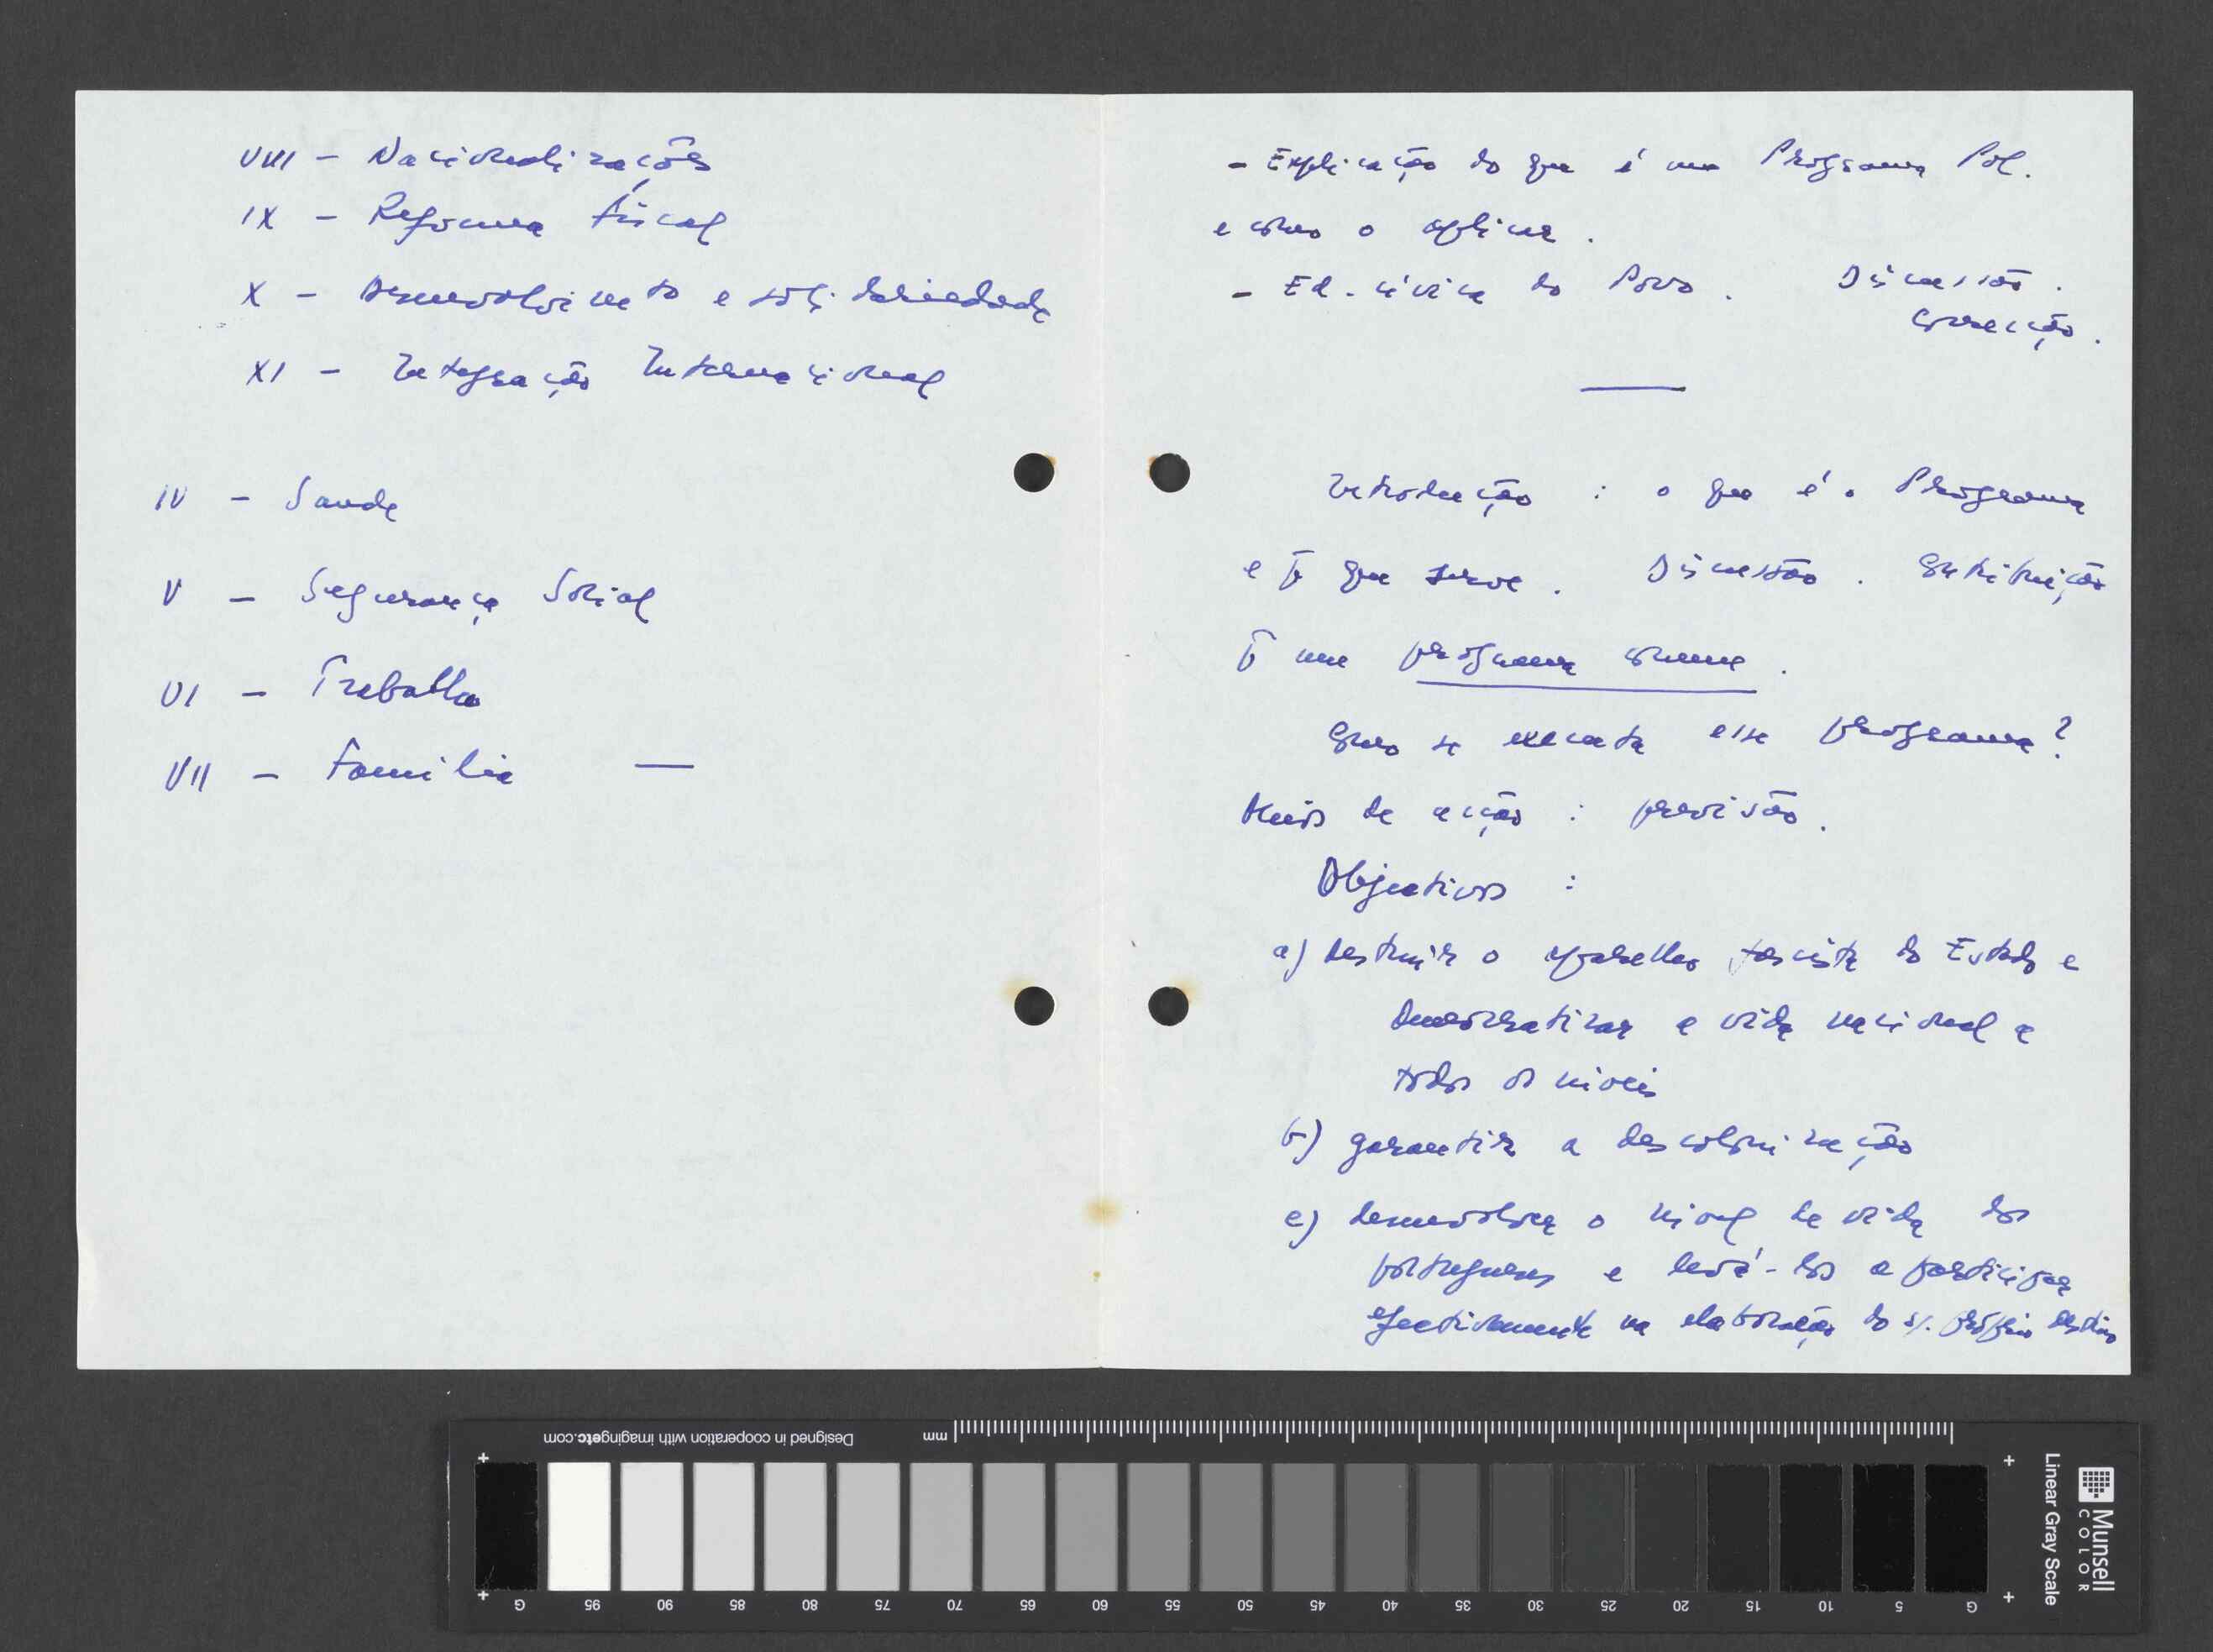 VIII – Nacionalizações
IX – Reforma fiscal
X – Desenvolvimento e solidariedade
XI – Integração Internacional
IV – Saude
V – Segurança Social
VI – Trabalho
VII – Familia —
- Explicação do que é um Programa Pol.
e como o aplicar.
- Ed. civica do Povo. Discussão.
Correcção.
Introdução : o que é o Programa
e p̄ que serve. Discussão. Contribuição
p̄ um programa comum.
Como se executa esse programa?
Meios de acção : previsão.
Objectivos :
a) destruir o aparelho fascista do Estado e
democratizar a vida nacional a
todos os niveis
b) garantir a descolonização
c) desenvolver o nivel de vida dos
portugueses e levá-los a participar
efectivamente na elaboração do s/. próprio destino
Designed in cooperation with imagingetc.com
mm
G 95 90 85 80 75 70 65 60 55 50 45 40 35 30 25 20 15 10 5 G
Munsell
COLOR
Linear Gray Scale